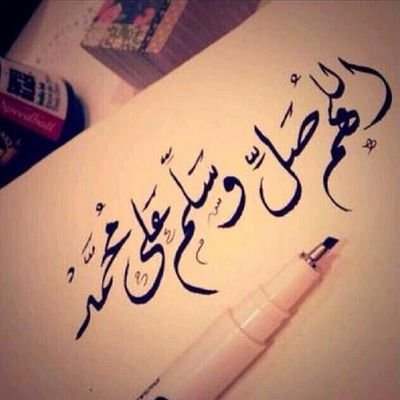 اللهم صَلِّ وسَلِّم عَلى مُحمَّدْ
Speedball